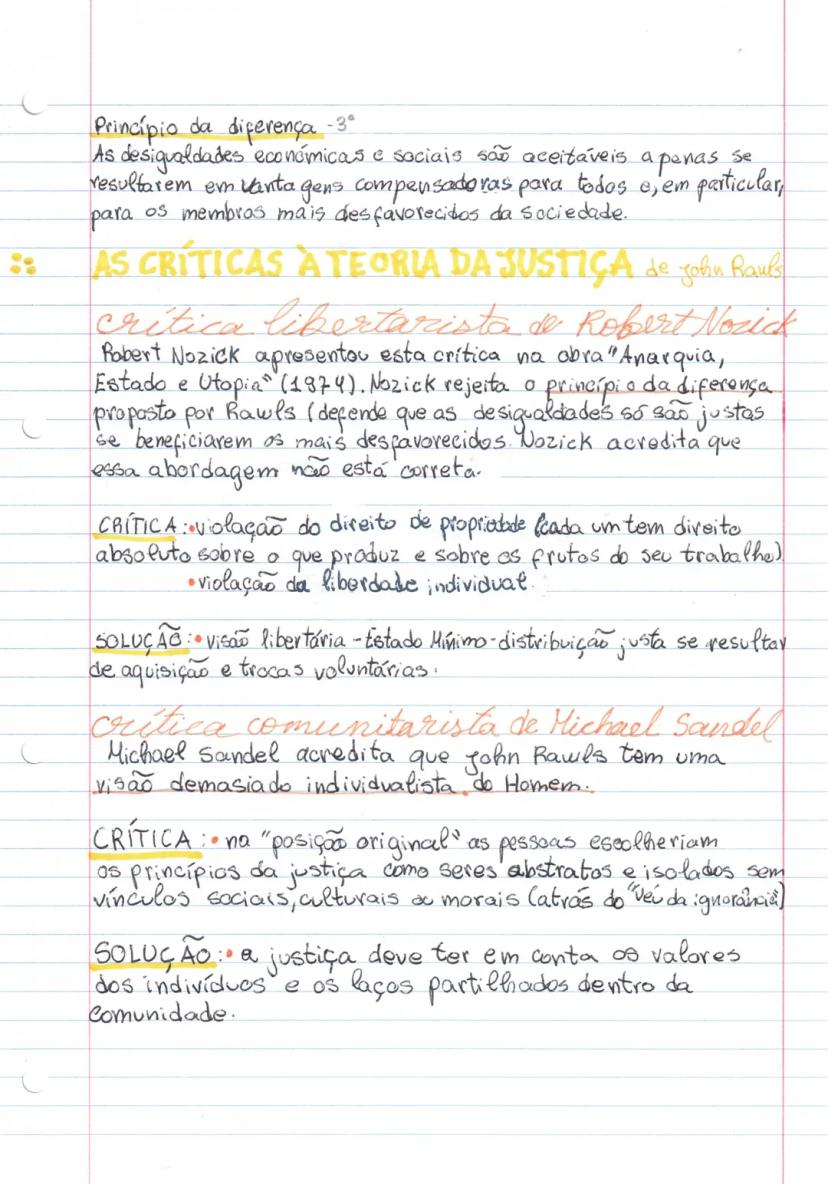 Princípio da diferença - 3º
As desigualdades económicas e sociais são aceitáveis apenas se
resultarem em vantagens compensadoras para todos e, em particular,
para os membros mais desfavorecidos da sociedade.
AS CRÍTICAS À TEORIA DA JUSTIÇA de John Rauls
crítica libertarista de Robert Nozick
Robert Nozick apresentou esta crítica na obra "Anarquia,
Estado e Utopia" (1974). Nozick rejeita o princípio da diferença
proposto por Rawls (defende que as desigualdades só são justas
se beneficiarem os mais desfavorecidos. Nozick acredita que
essa abordagem não está correta.
CRÍTICA: • violação do direito de propriedade (cada um tem direito
absoluto sobre o que produz e sobre os frutos do seu trabalho)
• violação da liberdade individual.
SOLUÇÃO: • visão libertária - Estado Mínimo - distribuição justa se resultar
de aquisição e trocas voluntárias.
crítica comunitarista de Michael Sandel
Michael Sandel acredita que John Rawls tem uma
visão demasiado individualista do Homem.
CRÍTICA: • na "posição original" as pessoas escolheriam
os princípios da justiça como seres abstratos e isolados sem
vínculos sociais, culturais ou morais (atrás do "véu da ignorância")
SOLUÇÃO: • a justiça deve ter em conta os valores
dos indivíduos e os laços partilhados dentro da
comunidade.